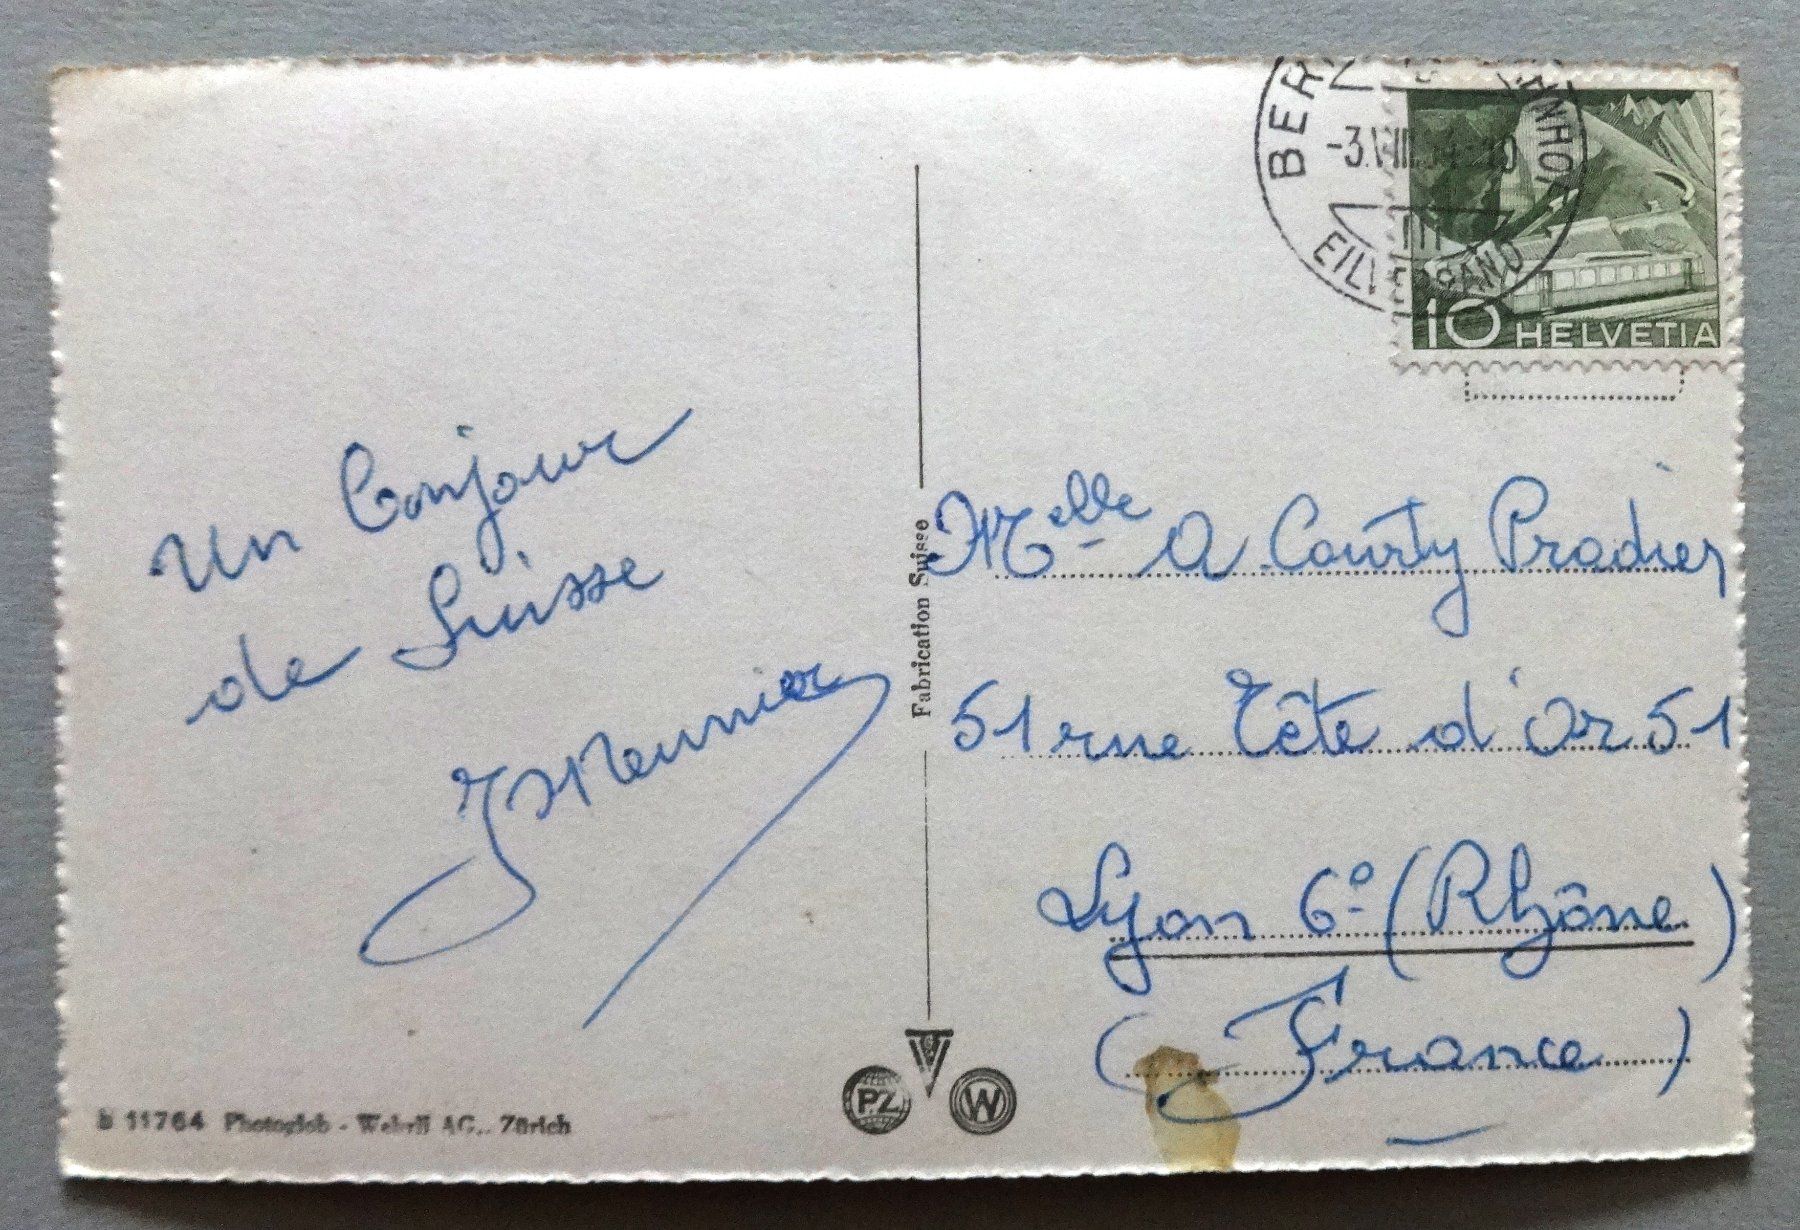 Un bonjour
de Suisse
JMeunier
11764 Photoglob - Wehrli AG., Zürich
Fabrication Suisse
PZ
W
BER
-3.VIII.
10 HELVETIA
Melle A Courty Pradier
51 rue Tête d'Or 51
Lyon 6º (Rhône)
(France)